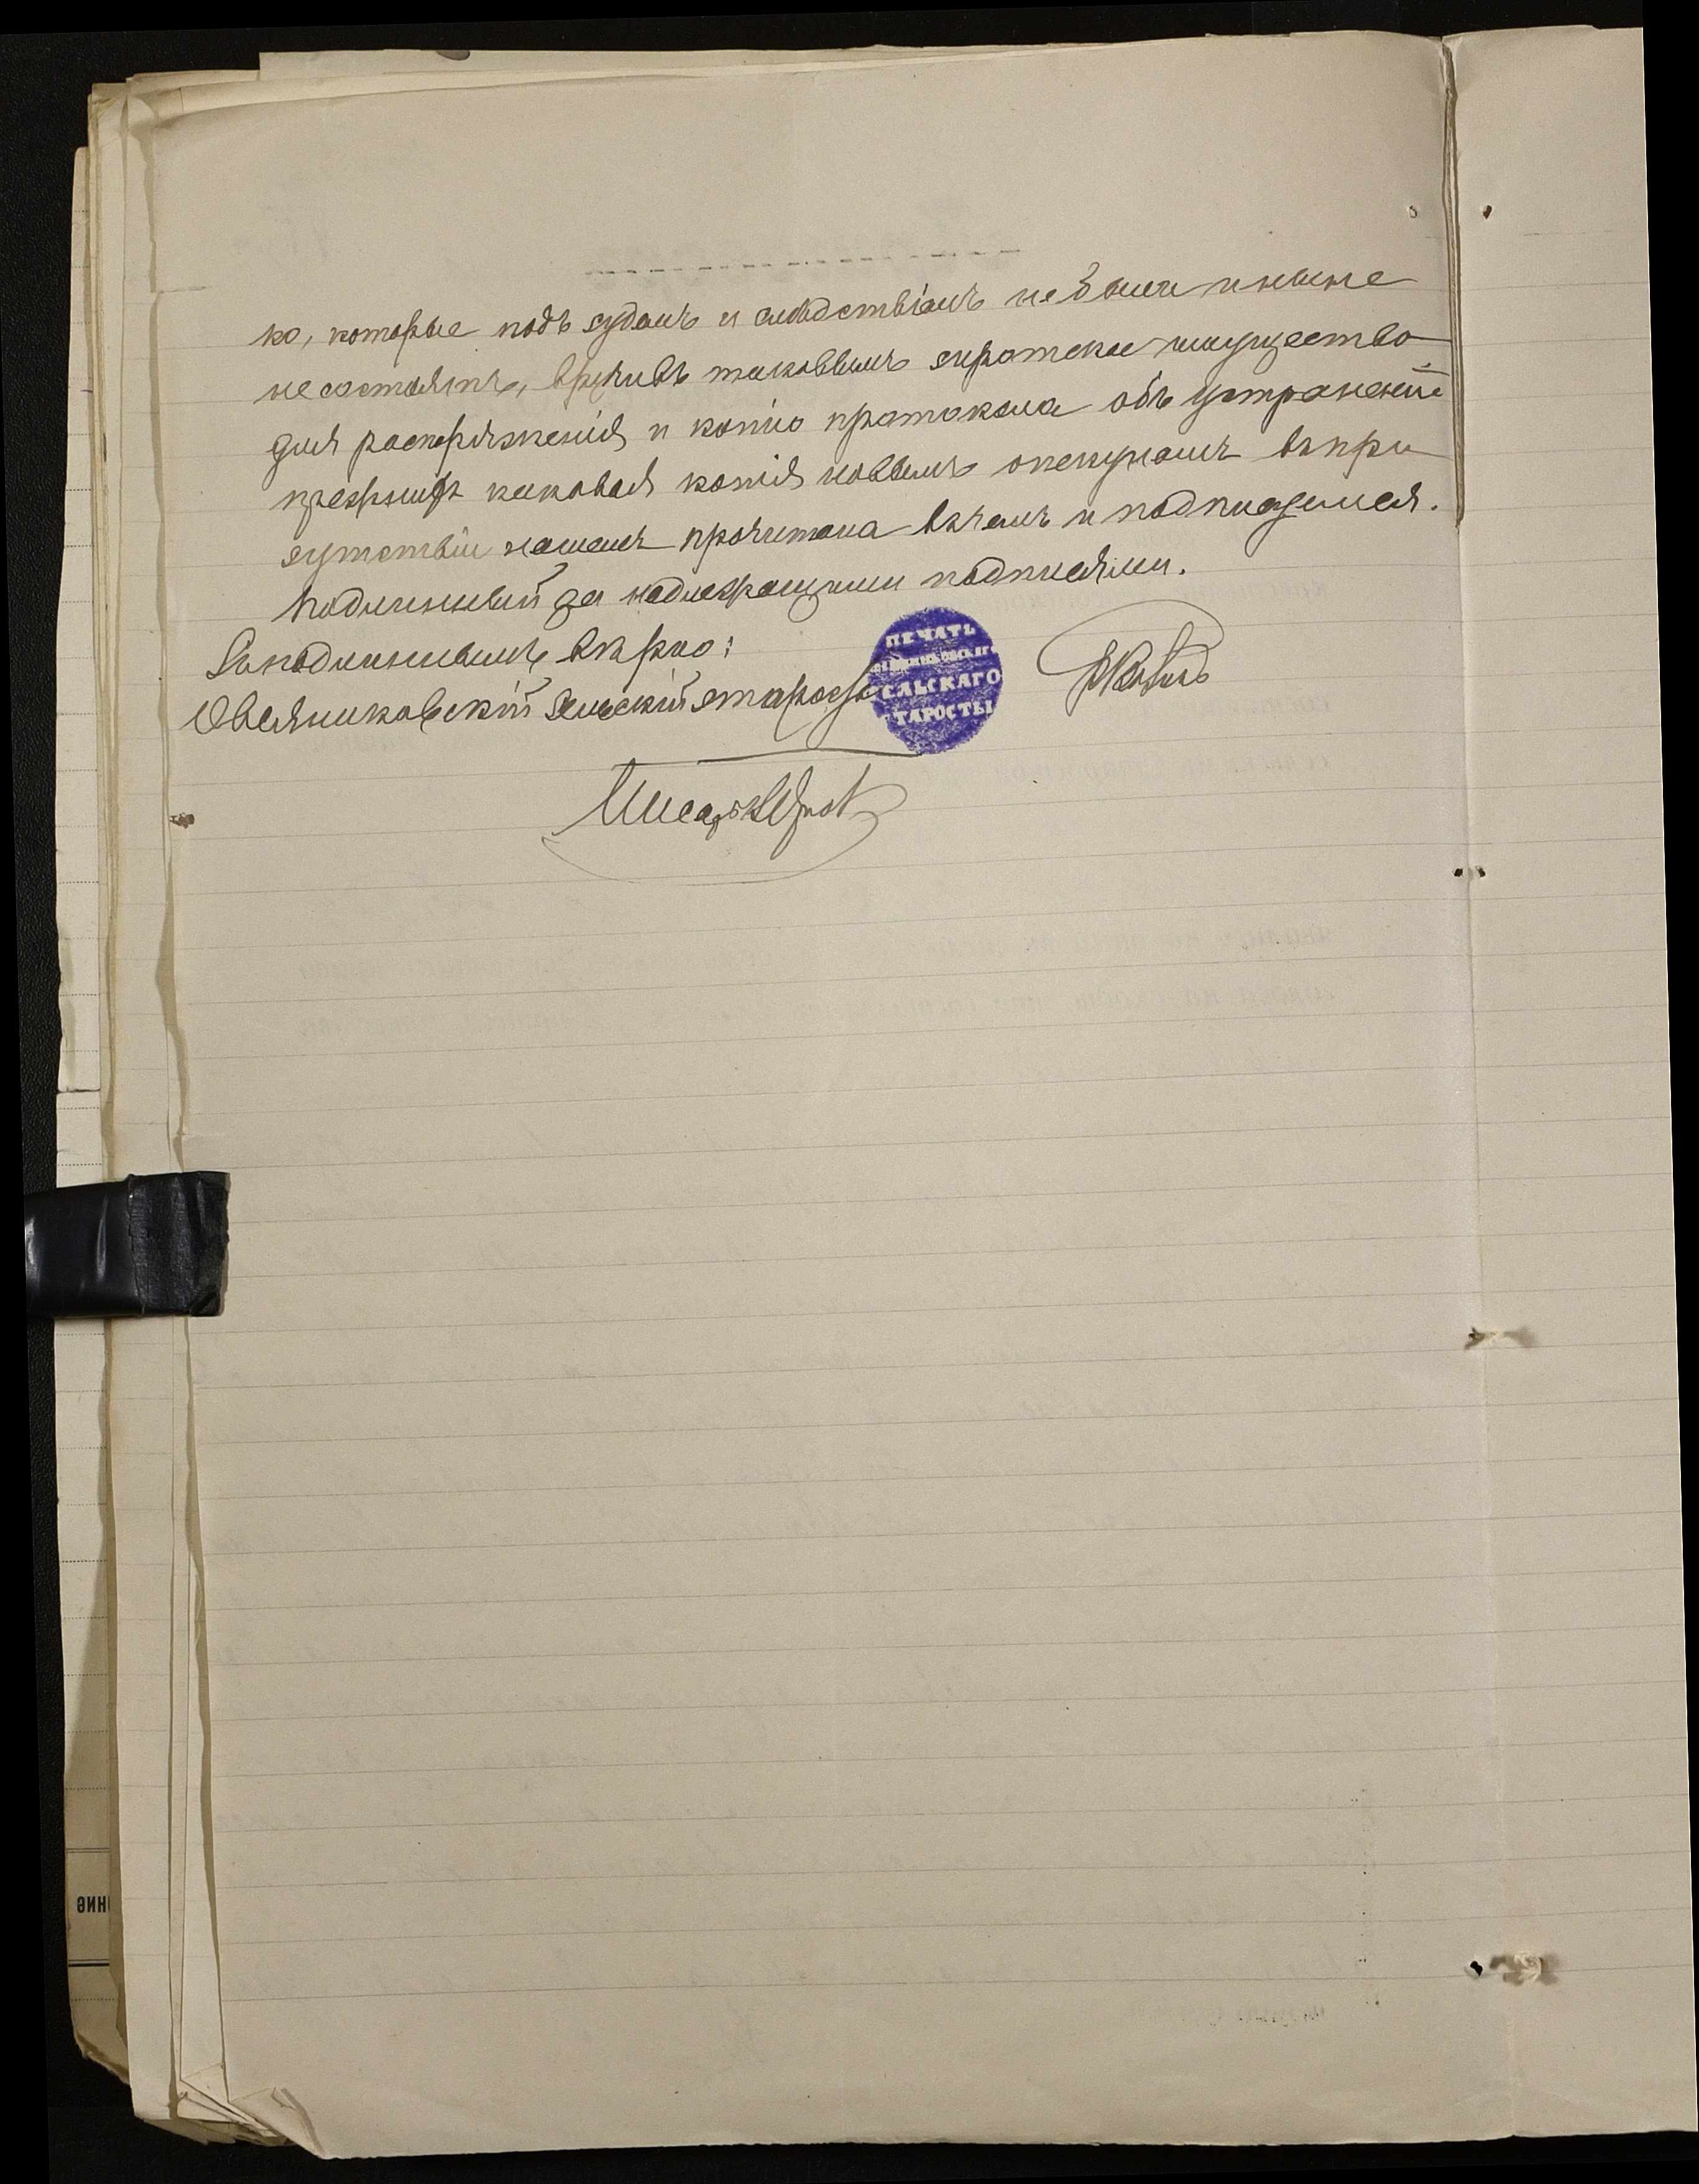 ко, которые подъ судомъ и слѣдствіемъ не были и ныне
не состоятъ, вручивъ таковымъ сиротское имущество
для распоряженія и копію протокола объ устраненіи
прежнихъ каковая копія новымъ опекунамъ въ при
сутствіи нашемъ прочитана въ чемъ и подписуемся.
Подлинный за надлежащими подписями.
Съ подлиннымъ вѣрно:
Овсянниковскій Сельскій староста
Писарь
ПЕЧАТЬ
СЕЛЬСКАГО
СТАРОСТЫ
ние